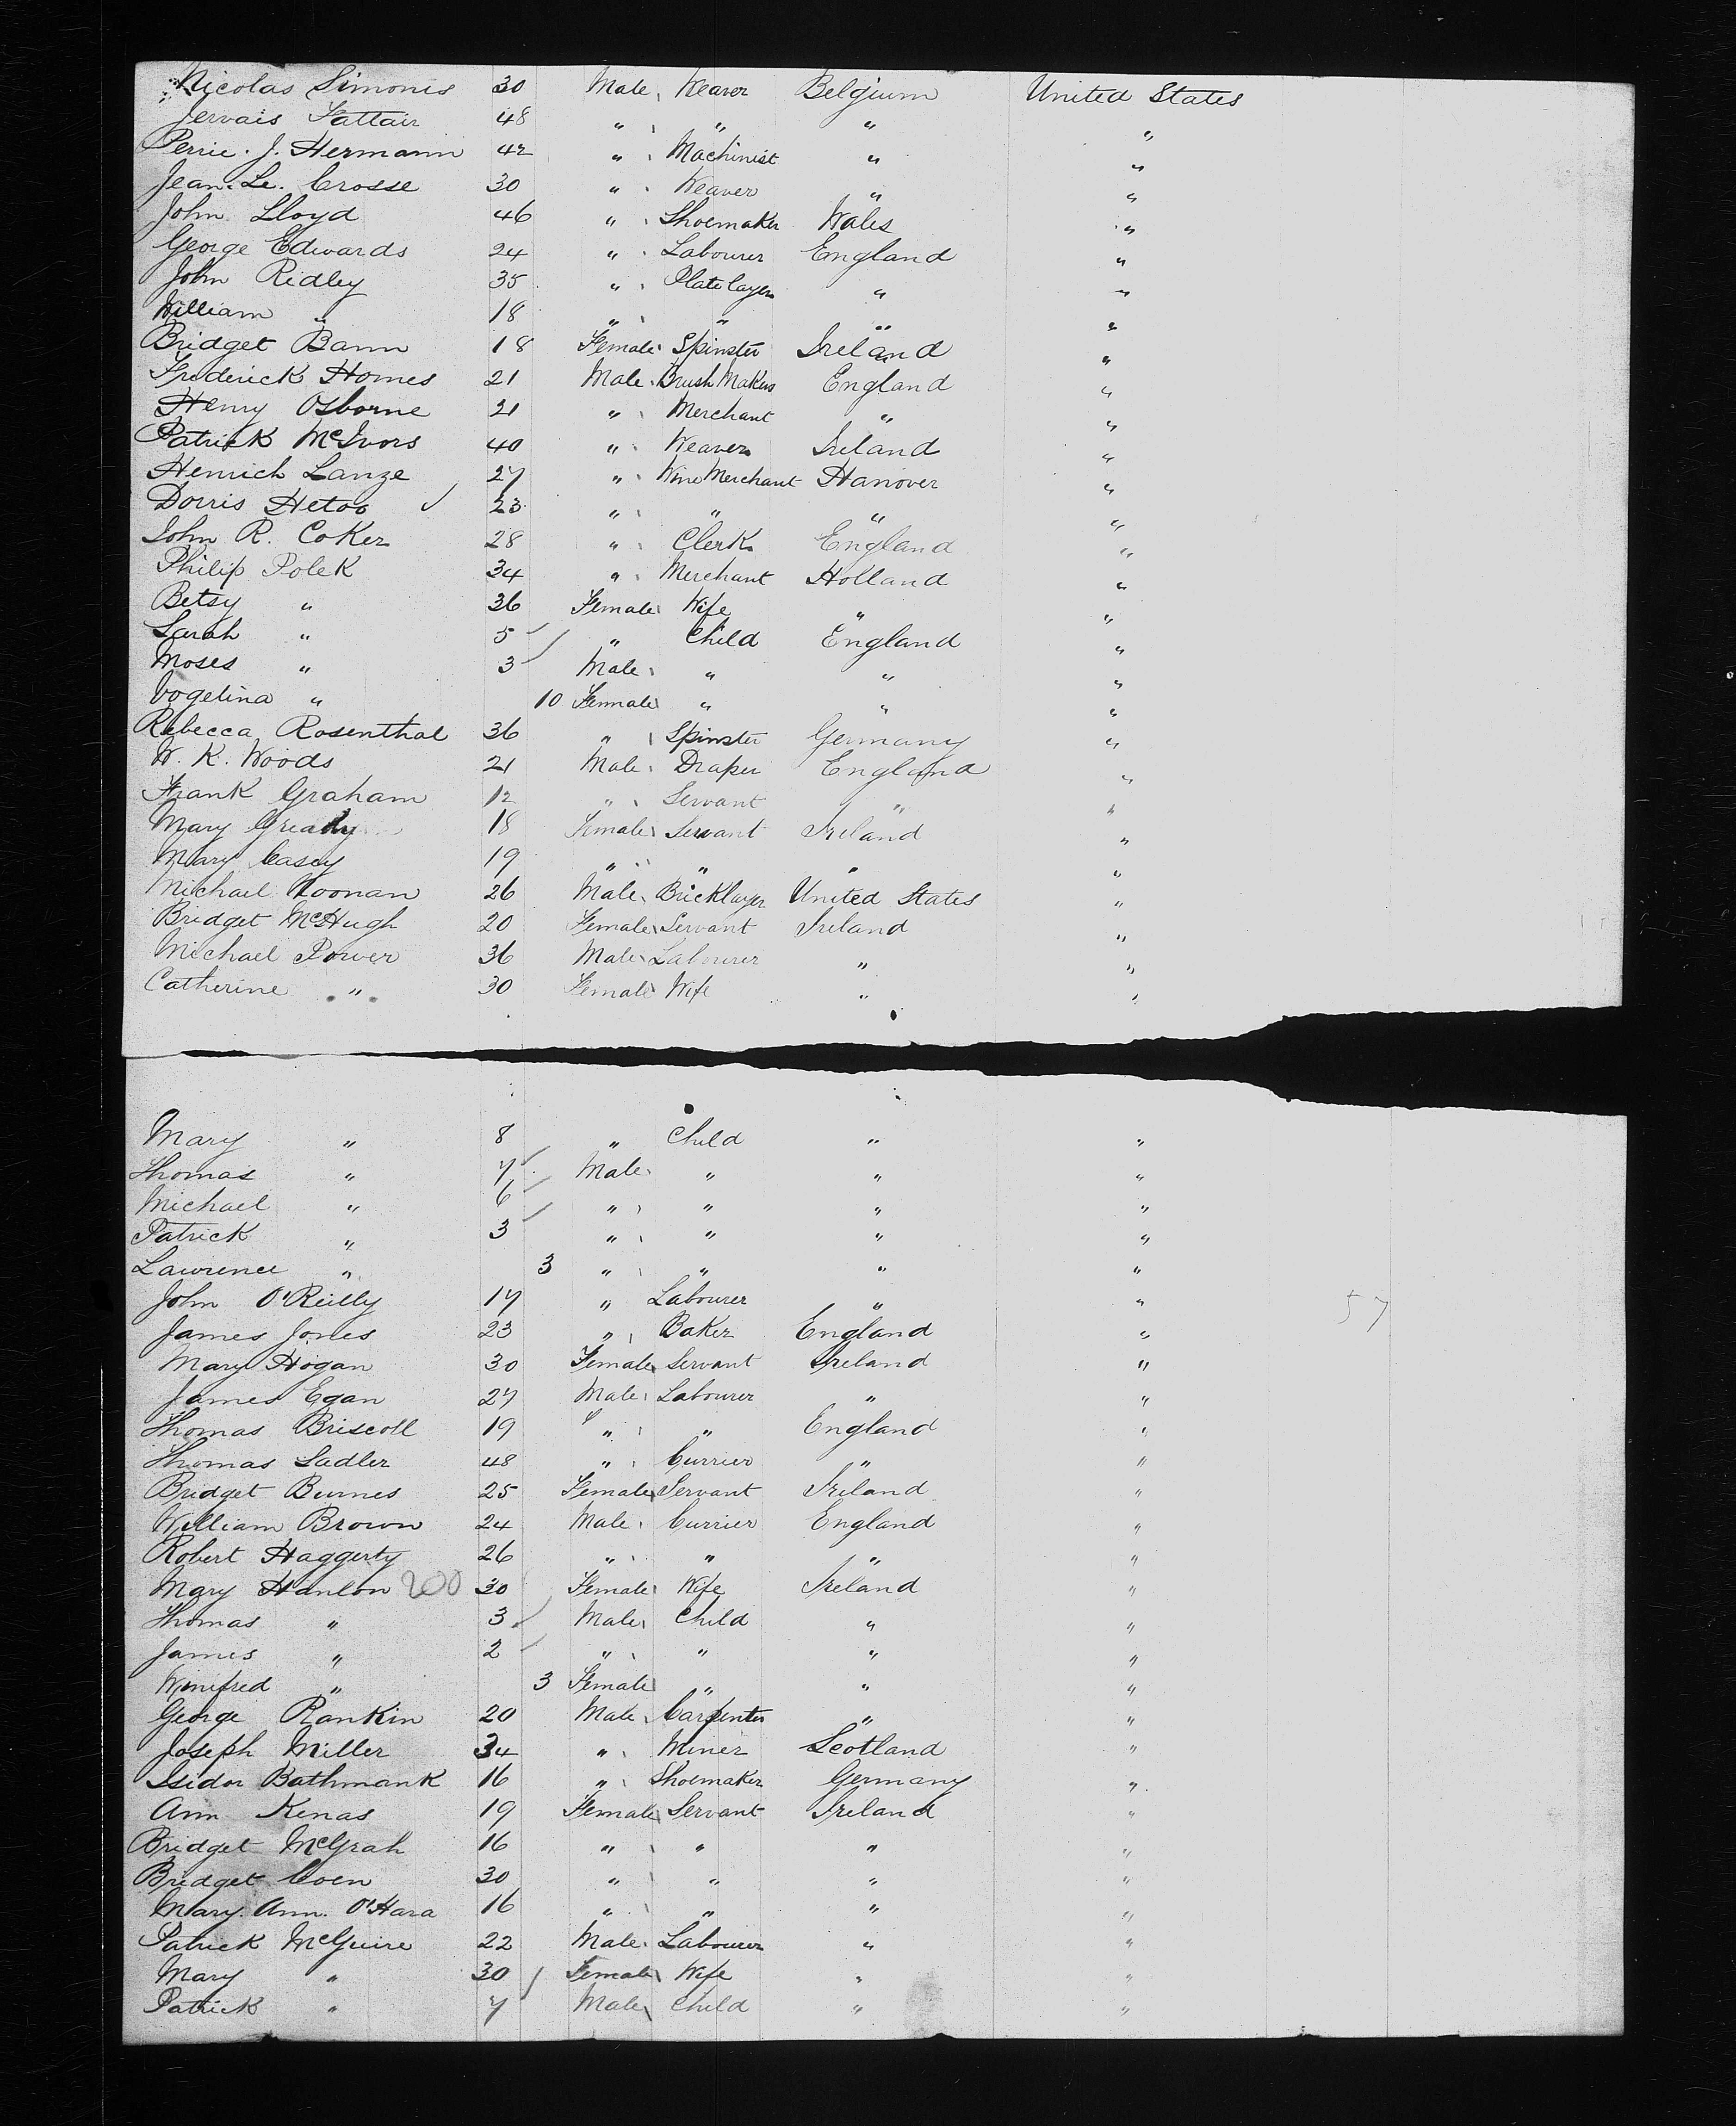 Nicolas Simonis 30 Male Weaver Belgium United States
Jervais Fattair 48 " " " "
Perrie. J. Hermann 42 " Machinist " "
Jean. Le. Crosse 30 " Weaver " "
John Lloyd 46 " Shoemaker Wales "
George Edwards 24 " Labourer England "
John Ridley 35 " Platelayer " "
William " 18 " " " "
Bridget Bann 18 Female Spinster Ireland "
Frederick Homes 21 Male Brush Maker England "
Henry Osborne 21 " Merchant " "
Patrick McIvors 40 " Weaver Ireland "
Henrich Lanze 27 " Wine Merchant Hanover "
Dorris 23 " " " "
John R. Coker 28 " Clerk England "
Philip Polek 34 " Merchant Holland "
Betsy " 36 Female Wife " "
Sarah " 5 " Child England "
Moses " 3 Male " " "
Vogelina " 10 Female " " "
Rebecca Rosenthal 36 " Spinster Germany "
W. K. Woods 21 Male Draper England "
Frank Graham 12 " Servant " "
Mary Gready 18 Female Servant Ireland "
Mary Casey 19 " " " "
Michael Noonan 26 Male Bricklayer United States "
Bridget McHugh 20 Female Servant Ireland "
Michael Power 36 Male Labourer " "
Catherine " 30 Female Wife " "
Mary " 8 " Child " "
Thomas " 7 Male " " "
Michael " 6 " " " "
Patrick " 3 " " " "
Lawrence " 3 " " " "
John O'Reilly 17 " Labourer " " 57
James Jones 23 " Baker England "
Mary Hogan 30 Female Servant Ireland "
James Egan 27 Male Labourer " "
Thomas Briscoll 19 " " England "
Thomas Sadler 48 " Currier " "
Bridget Burnes 25 Female Servant Ireland "
William Brown 24 Male Currier England "
Robert Haggerty 26 " " " "
Mary Hanlon 200 30 Female Wife Ireland "
Thomas " 3 Male Child " "
James " 2 " " " "
Winifred " 3 Female " " "
George Rankin 20 Male Carpenter " "
Joseph Miller 34 " Miner Scotland "
Isidor Bathmank 16 " Shoemaker Germany "
Ann Kenas 19 Female Servant Ireland "
Bridget McGrah 16 " " " "
Bridget Coen 30 " " " "
Mary. Ann. O'Hara 16 " " " "
Patrick McGuire 22 Male Labourer " "
Mary " 30 Female Wife " "
Patrick " 7 Male Child " "